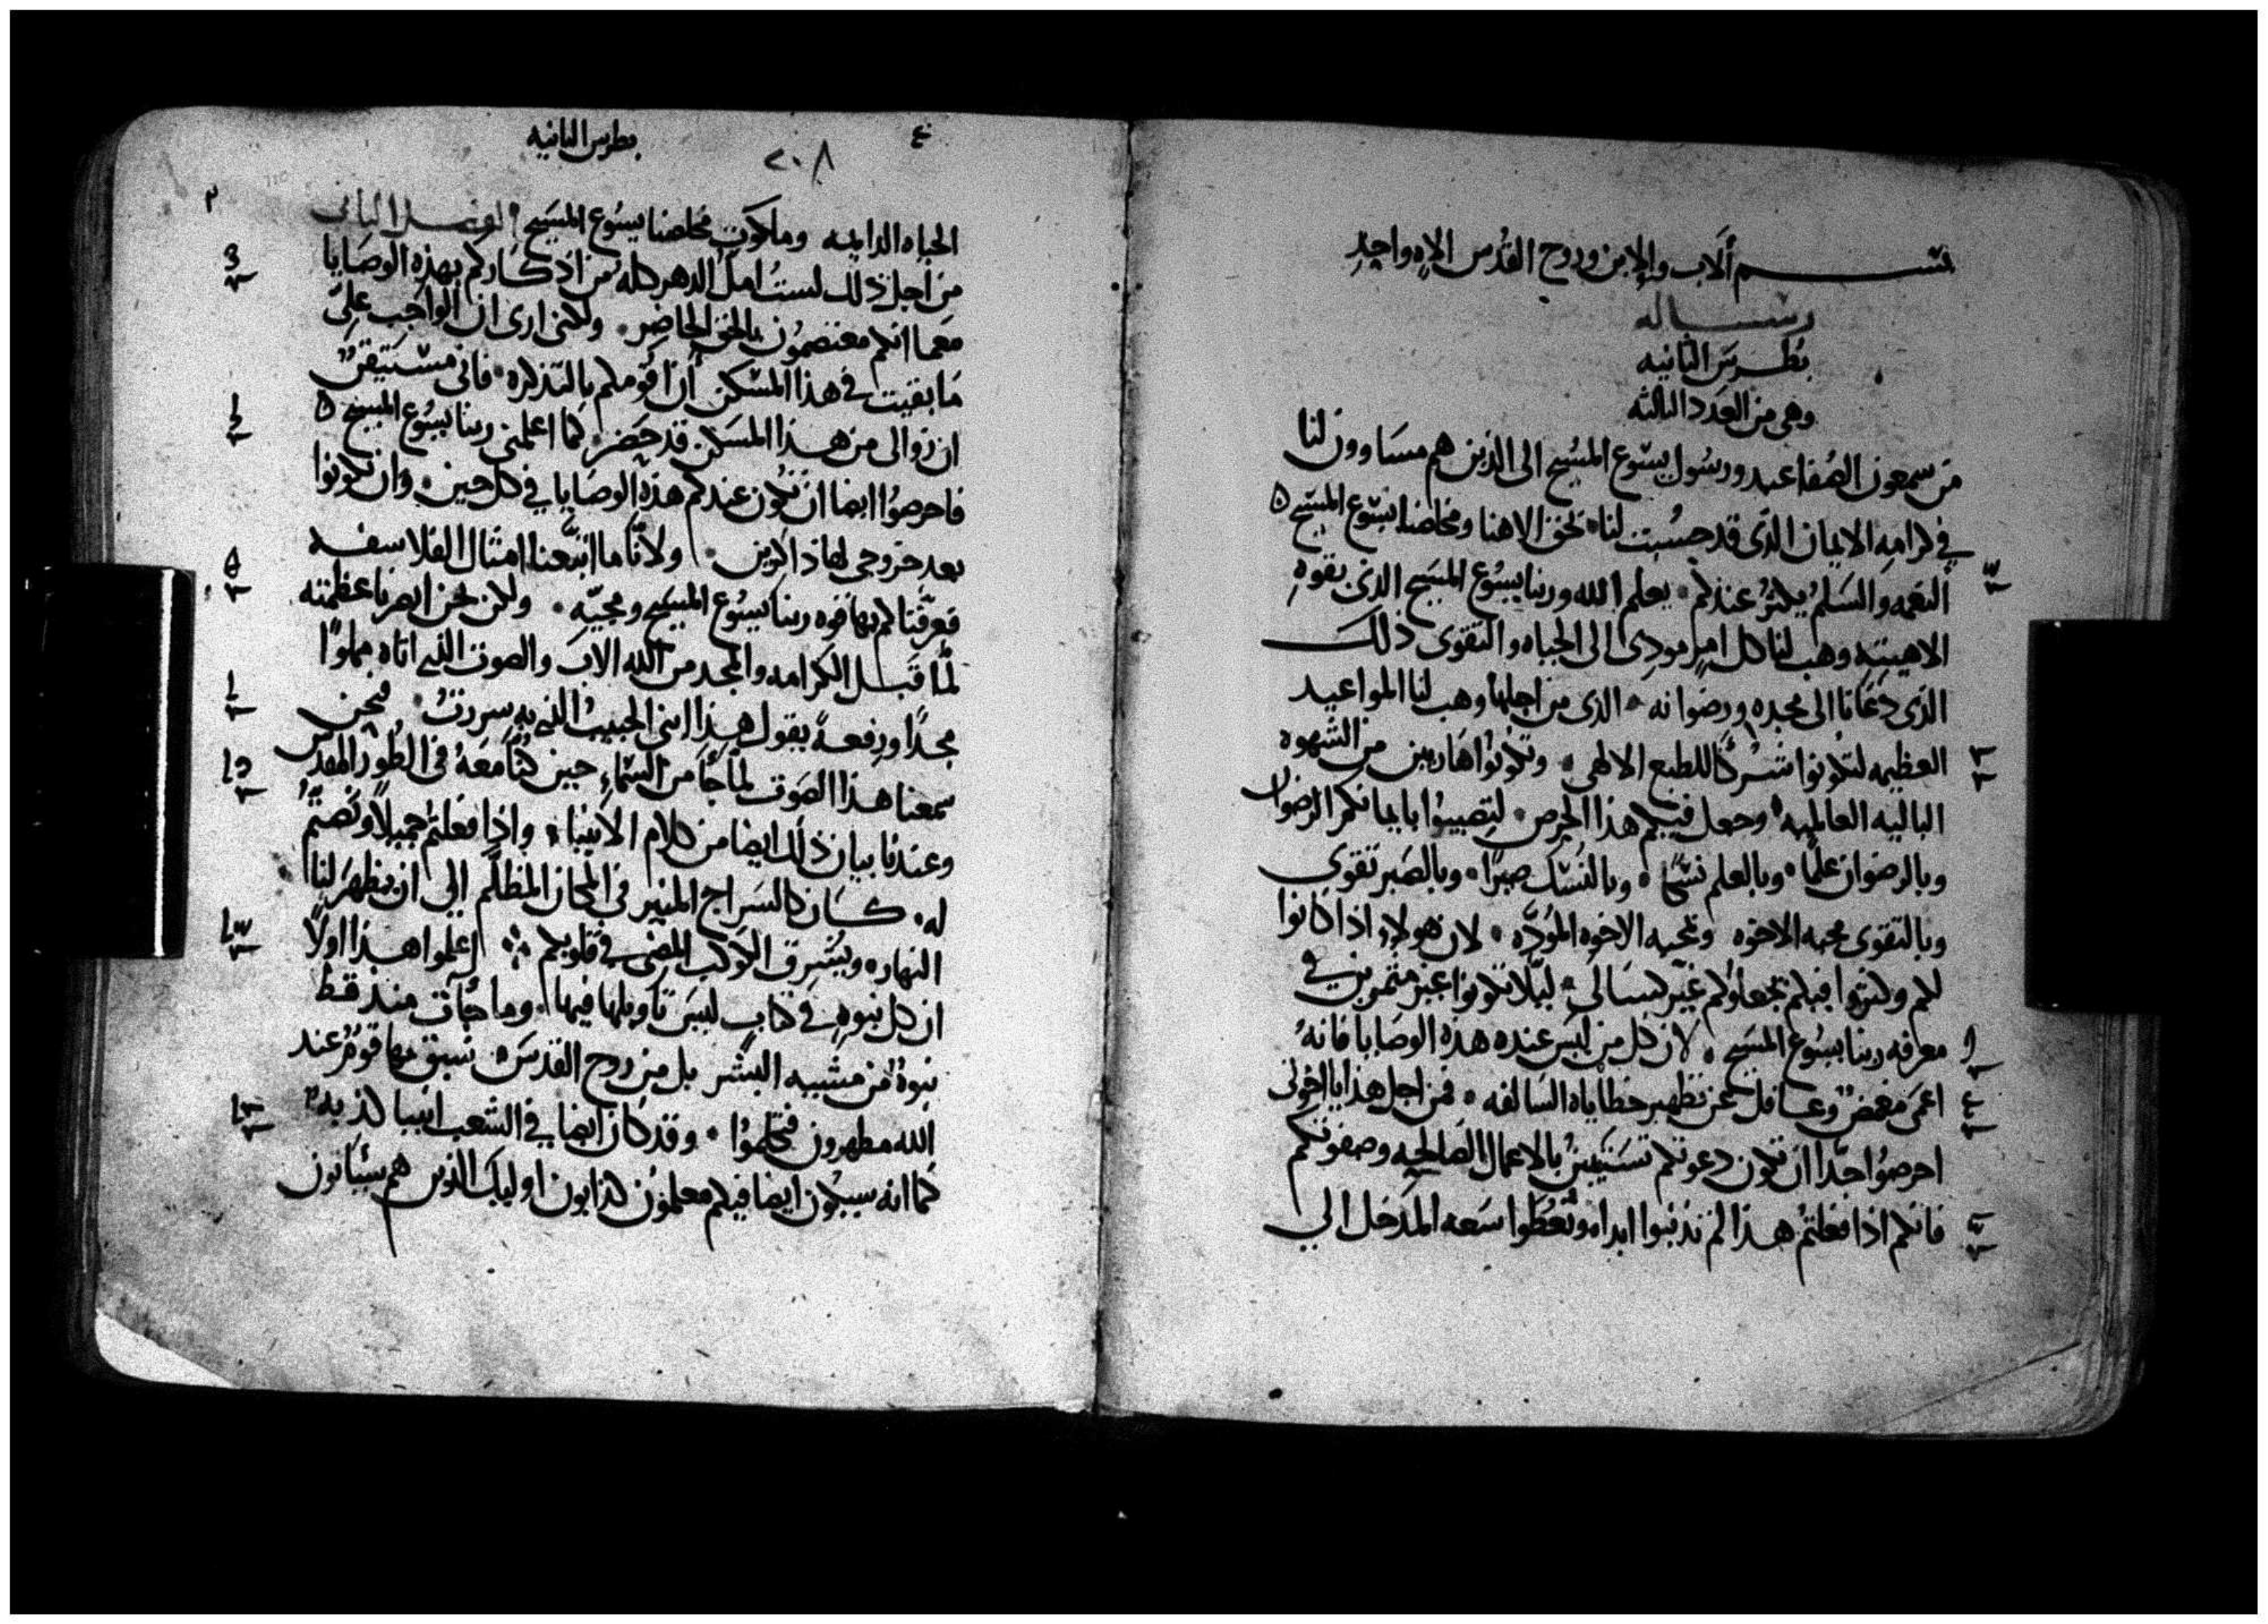 بسم الاب والابن وروح القدس الاه واحد
رساله
بطرس الثانيه
وهى من العدد الثالثه
من سمعون الصفا عبد ورسول يسوع المسيح الى الذين هم مساوون لنا
في كرامه الايمان الذى قد حسبت لنا بحق الاهنا ومخلصنا يسوع المسيح
النعمه والسلم يكثر عندكم يعلم الله وربنا يسوع المسيح الذى بقوه
الاهيته وهب لنا كل امر مودى الى الحياه والتقوى ذلك
الذى دعانا الى مجده ورضوانه الذى من اجلها وهب لنا المواعيد
العظيمه لتكونوا شركا للطبع الالهى وتكونوا هاربين من الشهوه
الباليه العالميه وجعل فيكم هذا الحرص لتصيبوا بايمانكم الرضوان
وبالرضوان علما وبالعلم نسكا وبالنسك صبرا وبالصبر تقوى
وبالتقوى محبه الاخوه وبمحبه الاخوه الموده لان هولاء اذا كانوا
لكم وكثروا فيكم تجعلوكم غير كسالى ليلا تكونوا غير مثمرين في
معرفه ربنا يسوع المسيح لان كل من ليس عنده هذه الوصايا فانه
اعمى مغمض وغافل عن تطهير خطاياه السالفه فمن اجل هذا يا اخوتى
احرصوا جدا ان تكون دعوتكم تستبين بالاعمال الصالحيه وصفوتكم
فانكم اذا فعلتم هذا لم تذنبوا ابدا وتعطوا سعه المدخل الي
بطرس الثانيه
٢٠٨
الحياه الدايمه وملكوت مخلصنا يسوع المسيح الفصل الثانى
من اجل ذلك لست امل الدهر كله من اذكاركم بهذه الوصايا
معما انكم معتصمون بالحق الحاضر ولكنى ارى ان الواجب على
ما بقيت في هذا المسكن ان اقومكم بالتذكره فانى مستيقن
ان زوالى من هذا المسكن قد حضر كما اعلمنى ربنا يسوع المسيح
فاحرصوا ايضا ان تكون عندكم هذه الوصايا في كل حين وان تكونوا
بعد خروجى لها ذاكرين ولانا ما اتبعنا امثال الفلاسفه
فعرفناكم بها قوه ربنا يسوع المسيح ومجيه ولكن نحن ابصرنا عظمته
لما قبل الكرامه والمجد من الله الاب والصوت الذي اتاه مملوا
مجدا ورفعه بقول هذا ابنى الحبيب الذي به سررت فنحن
سمعنا هذا الصوت لما جا من السماء حين كنا معه فى الطور المقدس
وعندنا بيان ذلك ايضا من كلام الانبياء واذا فعلتم جميلا ونصتم
له كان كالسراج المنير فى المكان المظلم الى ان يظهر لنا
النهار ويشرق الكوكب المضى في قلوبكم اعلموا هذا اولا
ان كل نبوه في كتاب ليس تاويلها فيها وما جات منذ قط
نبوه من مشييه البشر بل من روح القدس سبق بها قوم عند
الله مطهرون فتكلموا وقد كان ايضا في الشعب انبيا كذبه
كما انه سيكون ايضا فيكم معلمون كذابون اوليك الذين هم سياتون